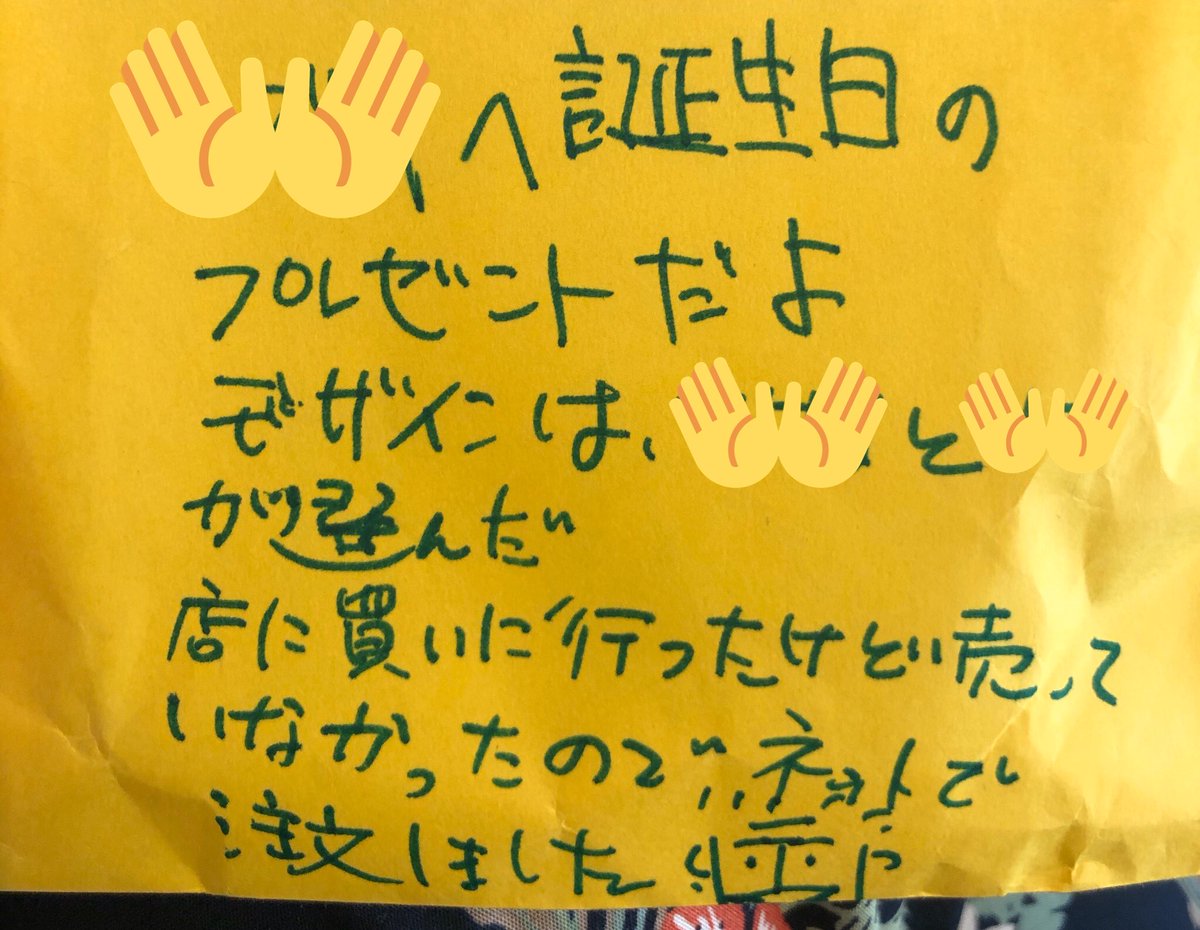 へ誕生日の
プレゼントだよ
デザインは、と
が選んだ
店に買いに行ったけど売って
いなかったのでネットで
注文しました